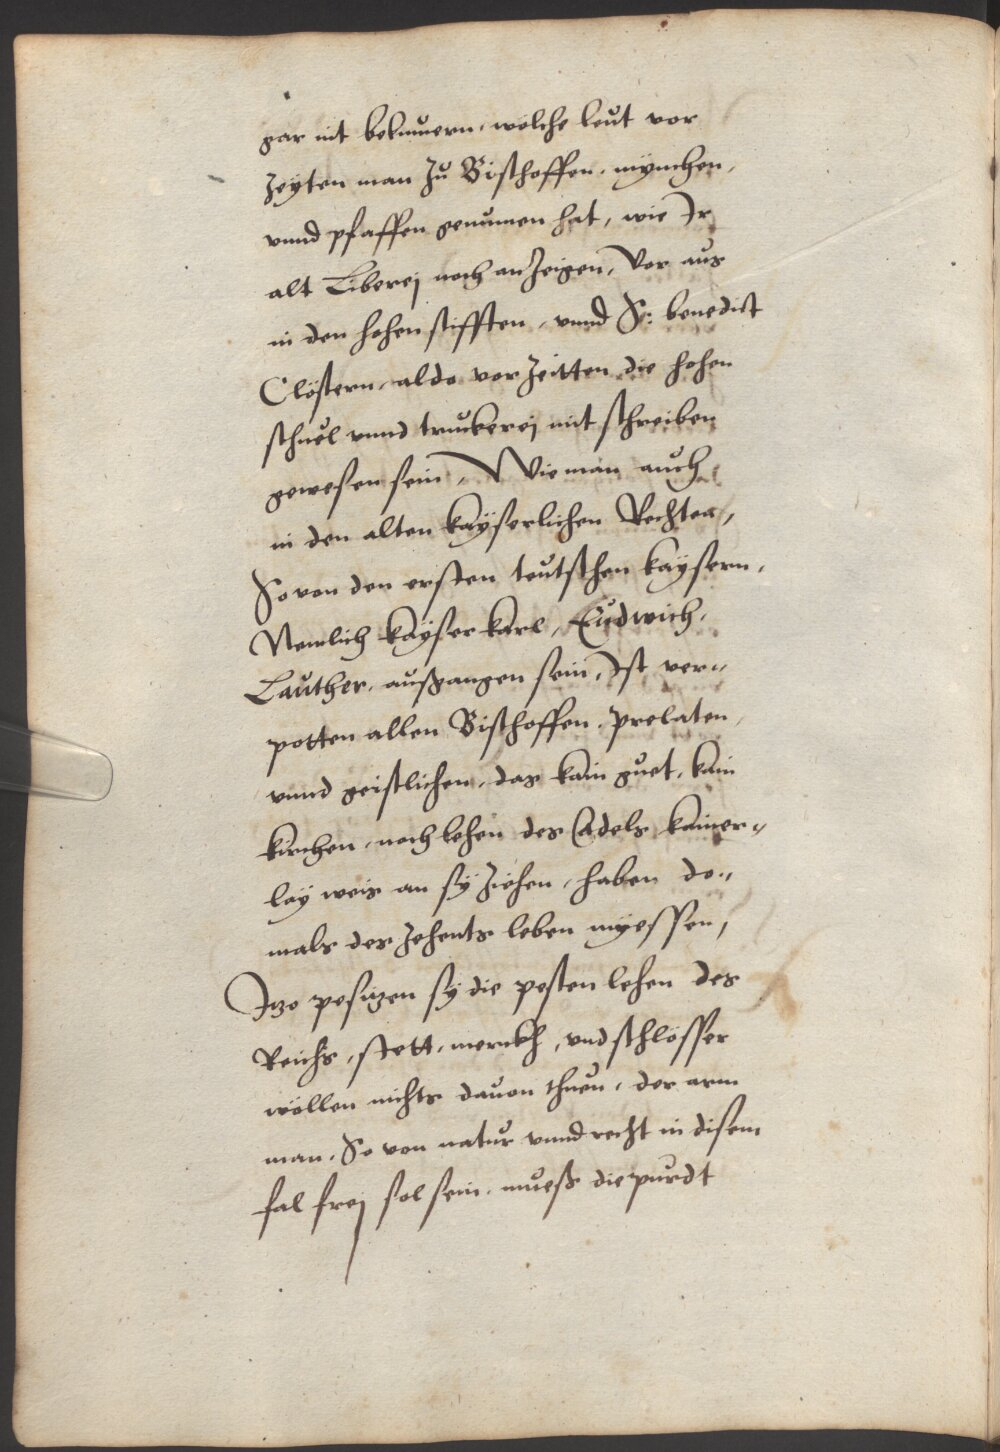 gar nit bekumern, welche leut vor
Zeyten man zu Bischoffen, mynchen,
vnnd pfaffen genumen hat, wie Ir
alt Liberej noch anzeigen, Vor aus
in den hohen stifften, vnnd S: benedict
Clöstern, aldo vor Zeitten die hohen
schuel vnnd truckerej mit schreiben
gewesen sein, Wie man auch
in den alten kayserlichen Rechten,
So von den ersten teutschen kaysern,
Nemlich kayser karl, Ludwich,
Lauther, außgangen sein, Ist ver„
potten allen Bischoffen, prelaten,
vnnd geistlichen, das kain guet, kain
kirchen, noch lehen des Adels kainer„
lay weis an sy ziehen, haben do„
mals des Zehents leben myessen,
Itzo positzen sy die posten lehen des
Reichs, stett, merckh, vnd schlosser
wöllen nichts dauon thuen, der arm
man, So von natur vnnd recht in disem
fal frej sol sein, mueß die purdt